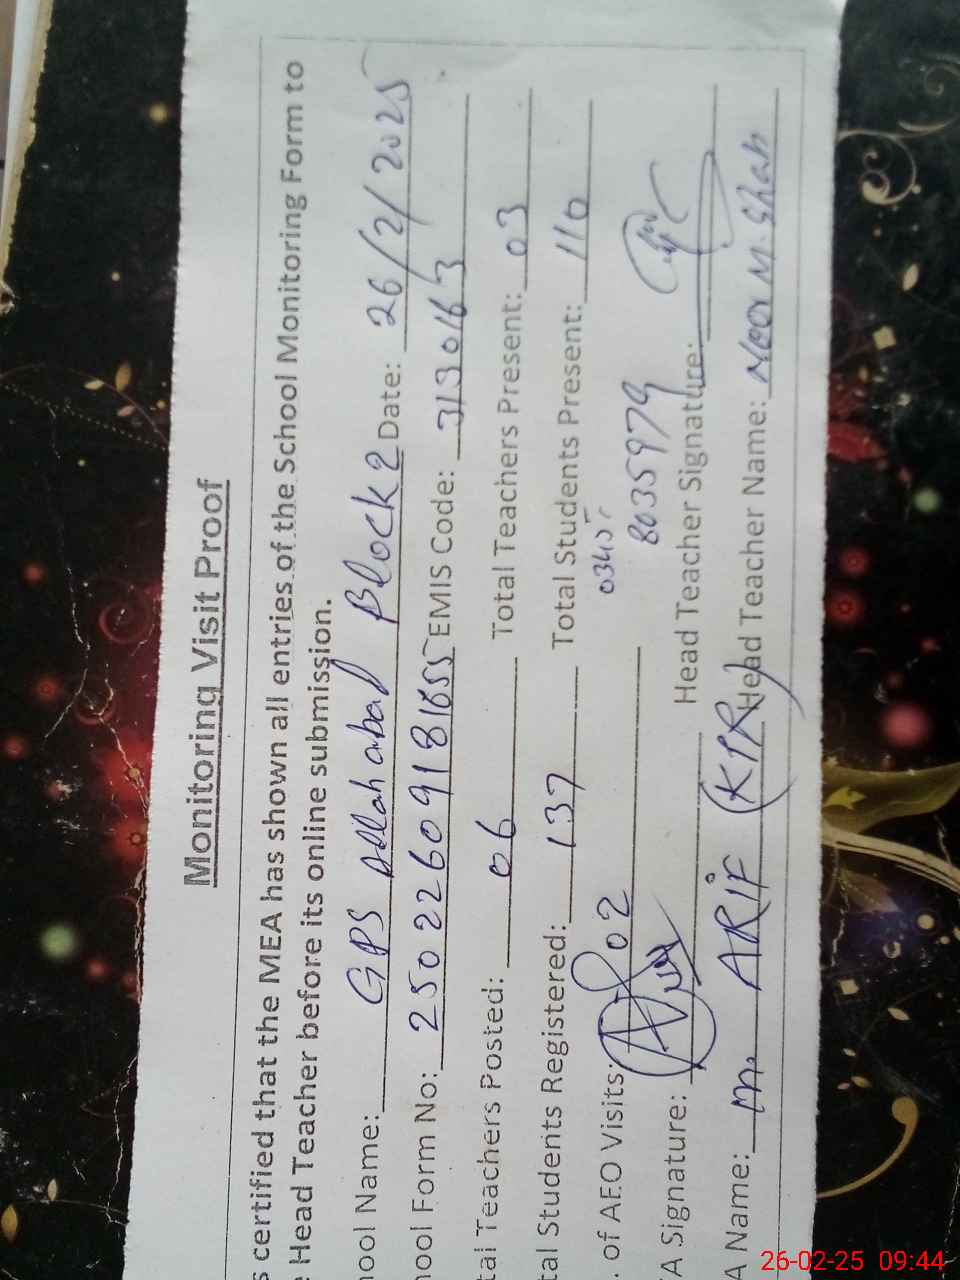 Monitoring Visit Proof
s certified that the MEA has shown all entries of the School Monitoring Form to
e Head Teacher before its online submission.
hool Name: GPS Allahabad Block 2 Date: 26/2/2025
hool Form No: 25022609181655 EMIS Code: 3130163
tal Teachers Posted: 06 Total Teachers Present: 03
tal Students Registered: 137 Total Students Present: 110
. of AEO Visits: 02
0345-
8035979
A Signature: Head Teacher Signature:
A Name: M. ARIF (KPR) Head Teacher Name: Noor M. Shah
26-02-25 09:44